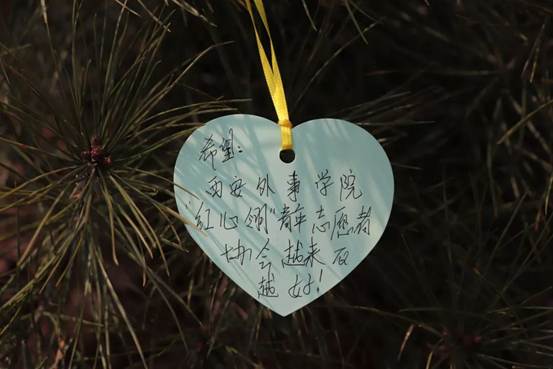 希望:
西安外事学院
"红心翎"青年志愿者
协会越来
越好!